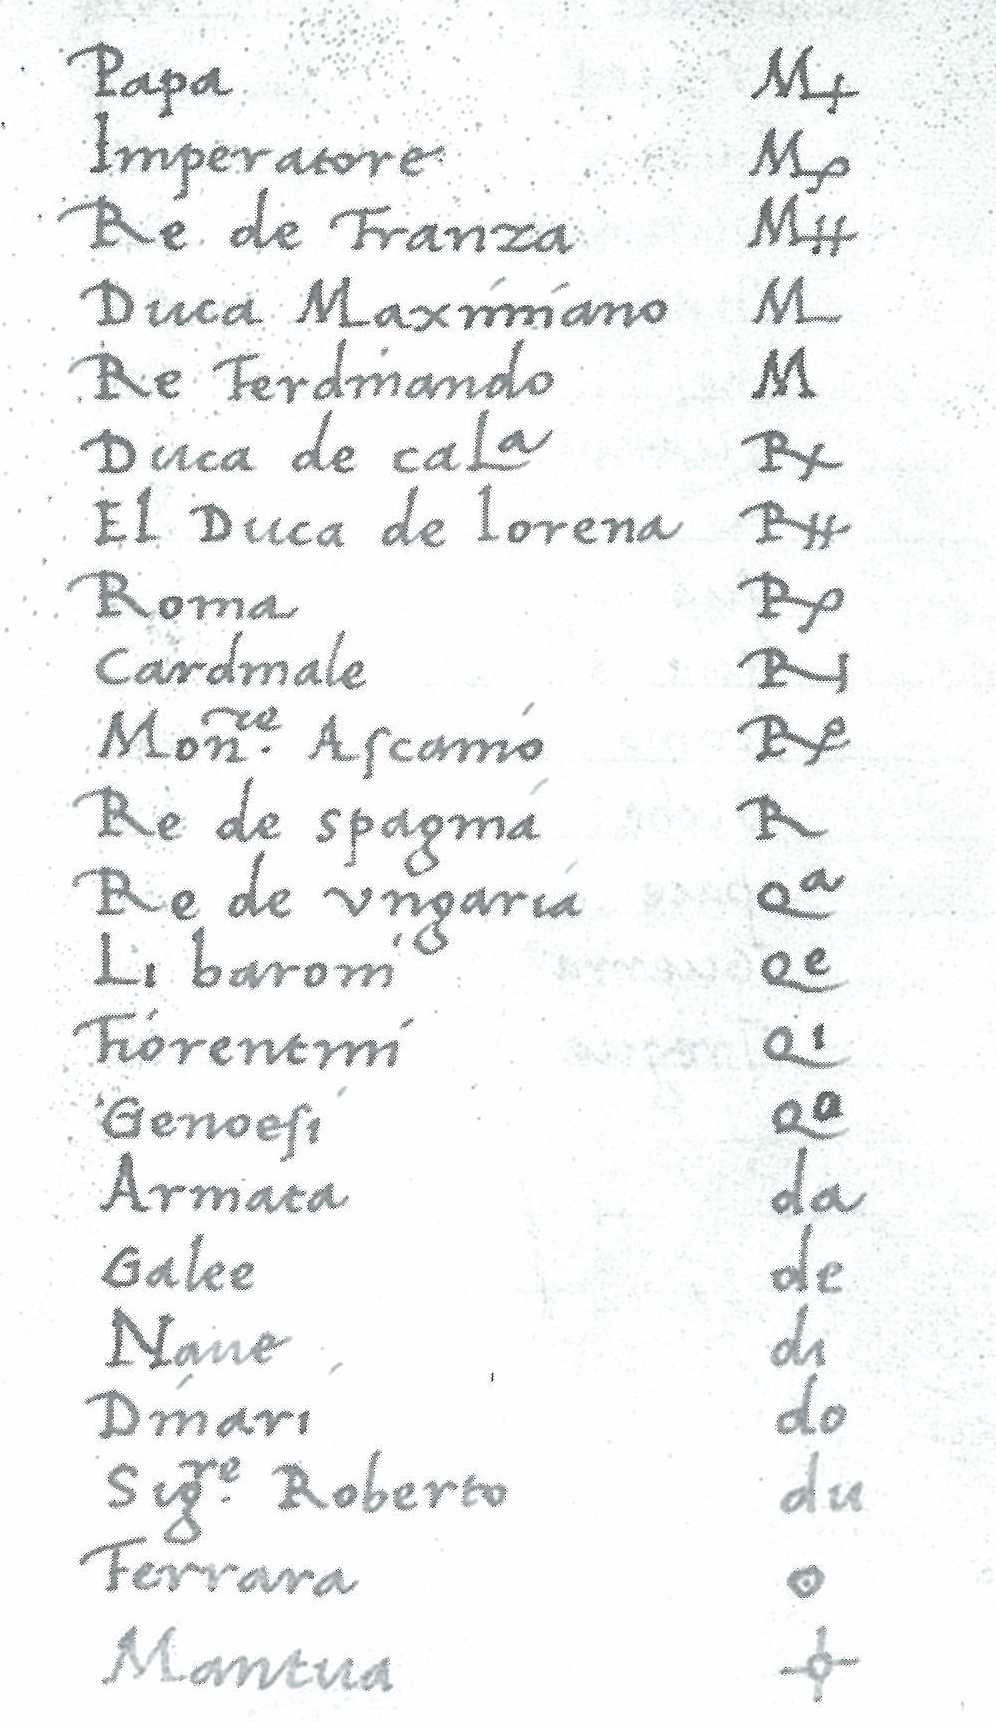 Papa M+
Imperatore Mρ
Re de Franza M++
Duca Maximiano M
Re Ferdinando M
Duca de cal.a R+
El Duca de lorena R++
Roma Rρ
Cardinale R
Mon.re Aſcanio Re
Re de spagnia R
Re de vngaria Qa
Li baroni Qe
Fiorentini Qi
Genoeſi Qo
Armata da
Galee de
Naue di
Dinari do
Sig.re Roberto du
Ferrara
Mantua